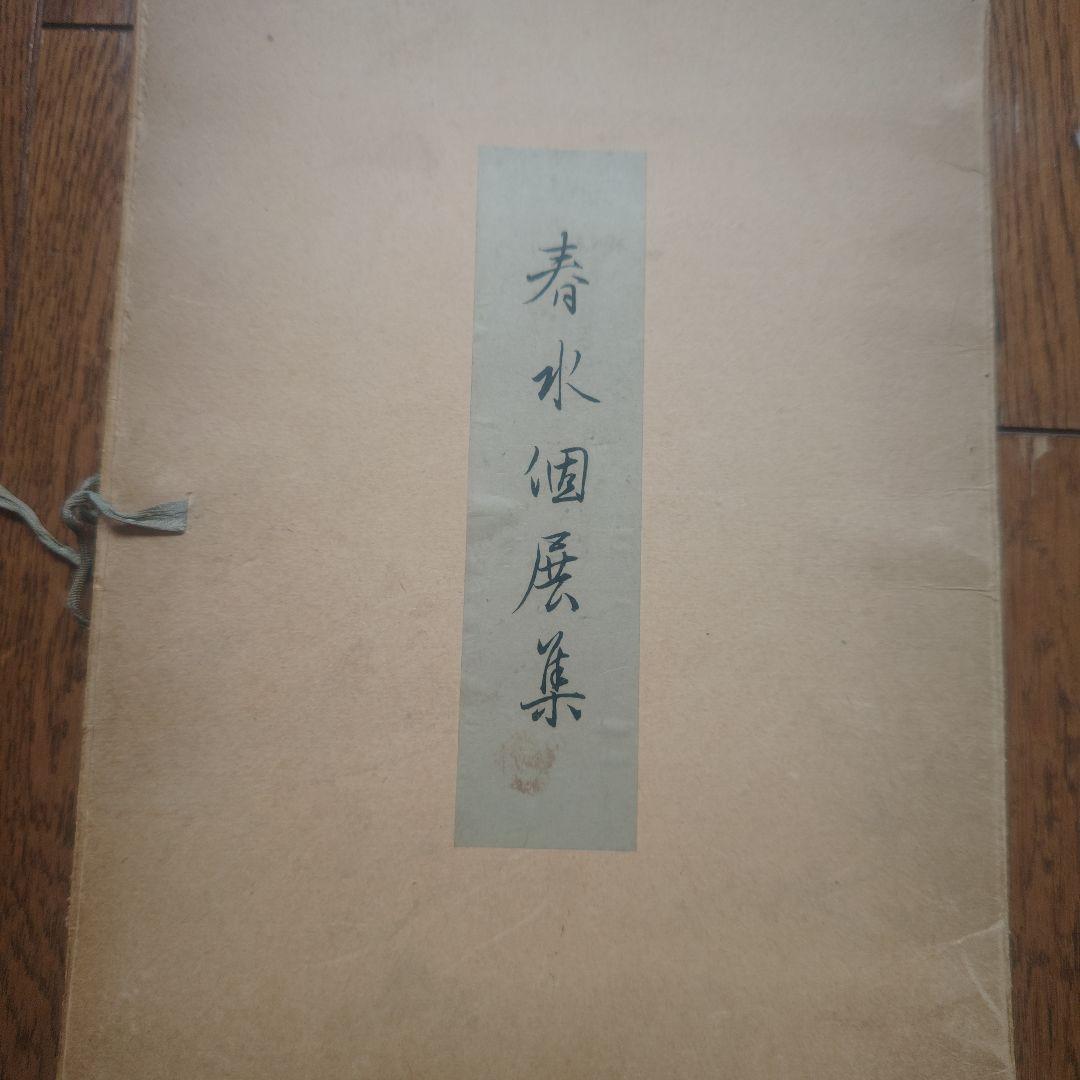 春水個展集